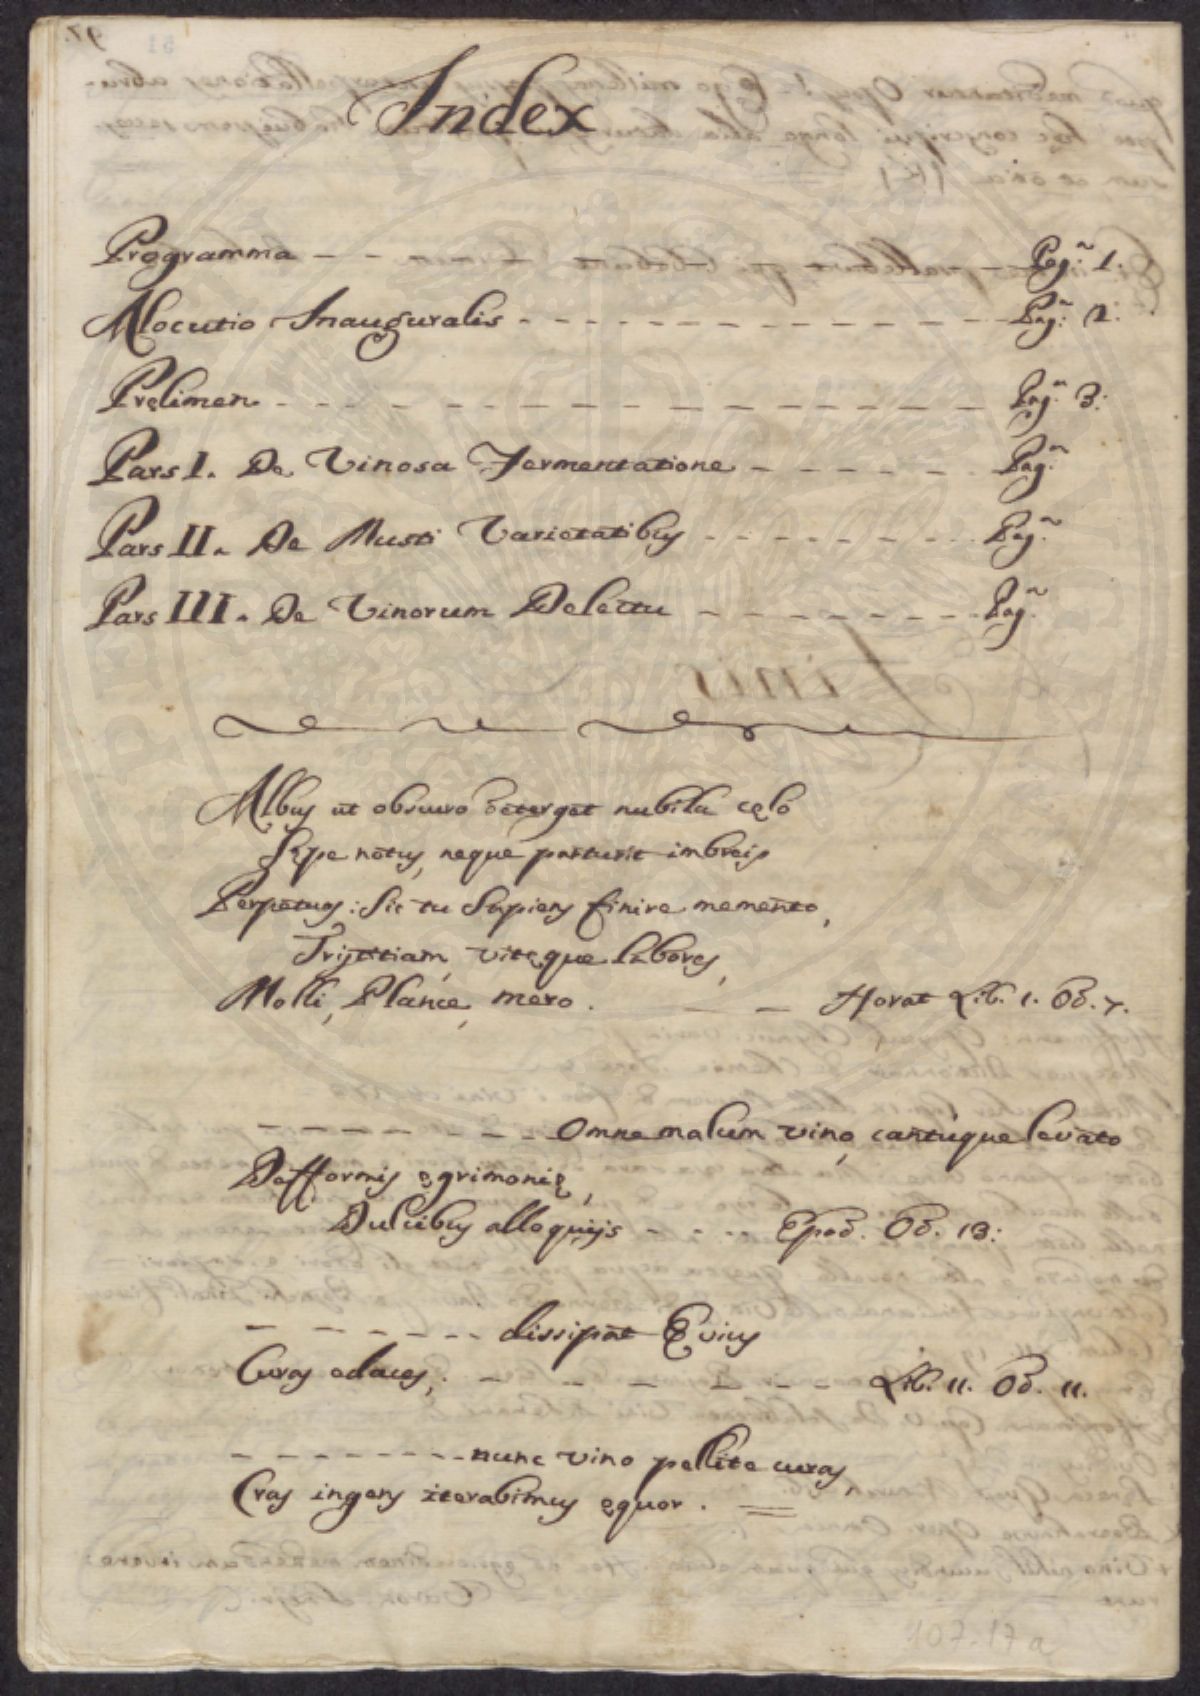 Index
Programma - - - - Pag.ª 1.
Allocutio Inauguralis - - - - - - - - - - - - - - Pag.ª 2.
Pręlimen - - - - - - - - - - - - - - - - - Pag.ª 3:
Pars I. De Vinosa Fermentatione - - - - - - Pag.ª
Pars II. De Musti Varietatibus - - - - - - - Pag.ª
Pars III. De Vinorum Delectu - - - - - - - Pag.ª
Albus ut obscuro deterget nubila cęlo
Sępe notus, neque parturit imbreis
Perpetuos: Sic tu Sapiens finire memento,
Tristitiam, vitęque labores,
Molli, Plance, mero. - - Horat Lib. 1. Od. 7.
- - - - - - - - - Omne malum vino, cantuque levato
Defformis ęgrimonię,
Dulcibus alloquijs - - - - Epod. Od. 13:
- - - - - - - dissipat Evius
Curas edaces; - - - - - - - Lib. 11. Od. 11.
- - - - - - - - - nunc vino pellite curas,
Cras ingens iterabimus ęquor. =
107-17a